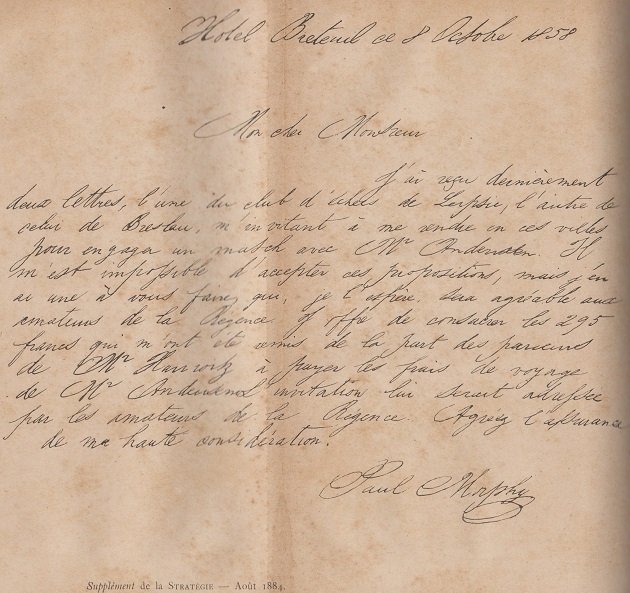 Hotel Breteuil ce 8 Octobre 1858
Mon cher Monsieur
J'ai reçu dernièrement
deux lettres, l'une du club d'échecs de Leipsic, l'autre de
celui de Breslau, m'invitant à me rendre en ces villes
pour engager un match avec Mr Anderssen. Il
m'est impossible d'accepter ces propositions, mais j'en
ai une à vous faire, qui, je l'espère, sera agréable aux
amateurs de la Régence. J'offre de consacrer les 295
francs qui m'ont été remis de la part des parieurs
de Mr Harrwitz à payer les frais de voyage
de Mr Anderssen invitation lui serait adressée
par les amateurs de la Régence. Agréez l'assurance
de ma haute considération.
Paul Morphy
Supplément de la STRATÉGIE — Août 1884.